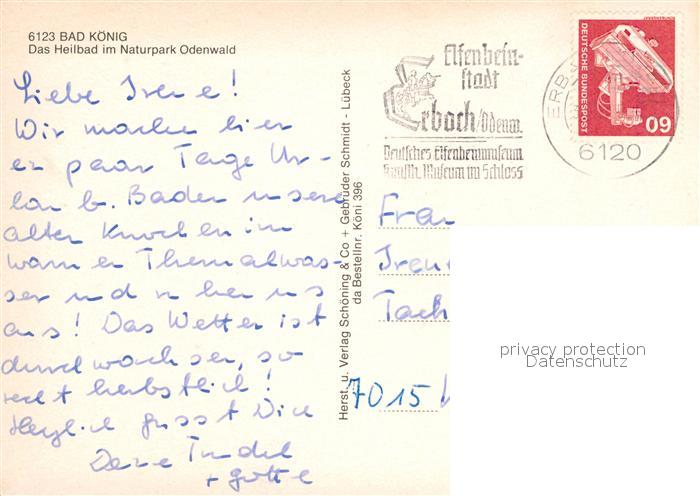 6123 BAD KÖNIG
Das Heilbad im Naturpark Odenwald
Liebe Irene!
Wir machen hier
ein paar Tage Ur-
laub. Baden unsere
alten Knochen im
warmen Thermalwas-
ser und ruhen uns
aus! Das Wetter ist
durchwachsen, so
recht herbstlich!
Herzlich grüsst Dich
Deine
+
Herst. u. Verlag Schöning & Co + Gebrüder Schmidt - Lübeck
da Bestellnr. Köni 396
Elfenbein-
stadt
Erbach/Odenw.
Deutsches Elfenbeinmuseum
Museum im Schloss
ERB
6120
DEUTSCHE BUNDESPOST
60
Frau
Irene
Tach
7015
privacy protection
Datenschutz